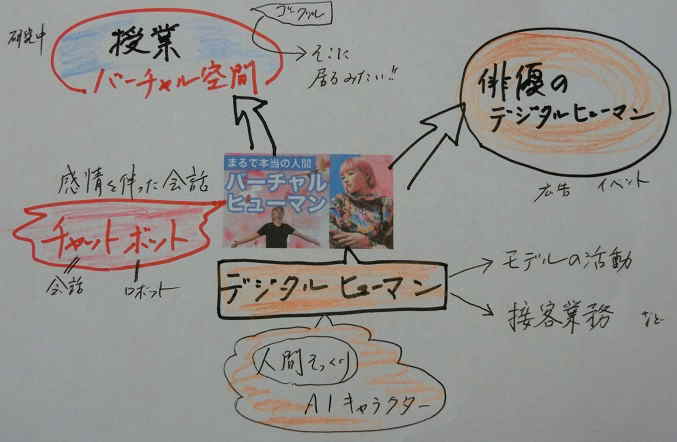 研究中
授業
バーチャル空間
ゴーグル
そこに
居るみたい!!
俳優の
デジタルヒューマン
広告 イベント
感情を伴った会話
チャットボット
会話
ロボット
まるで本当の人間
バーチャル
ヒューマン
デジタルヒューマン
モデルの活動
接客業務 など
人間そっくり
AIキャラクター